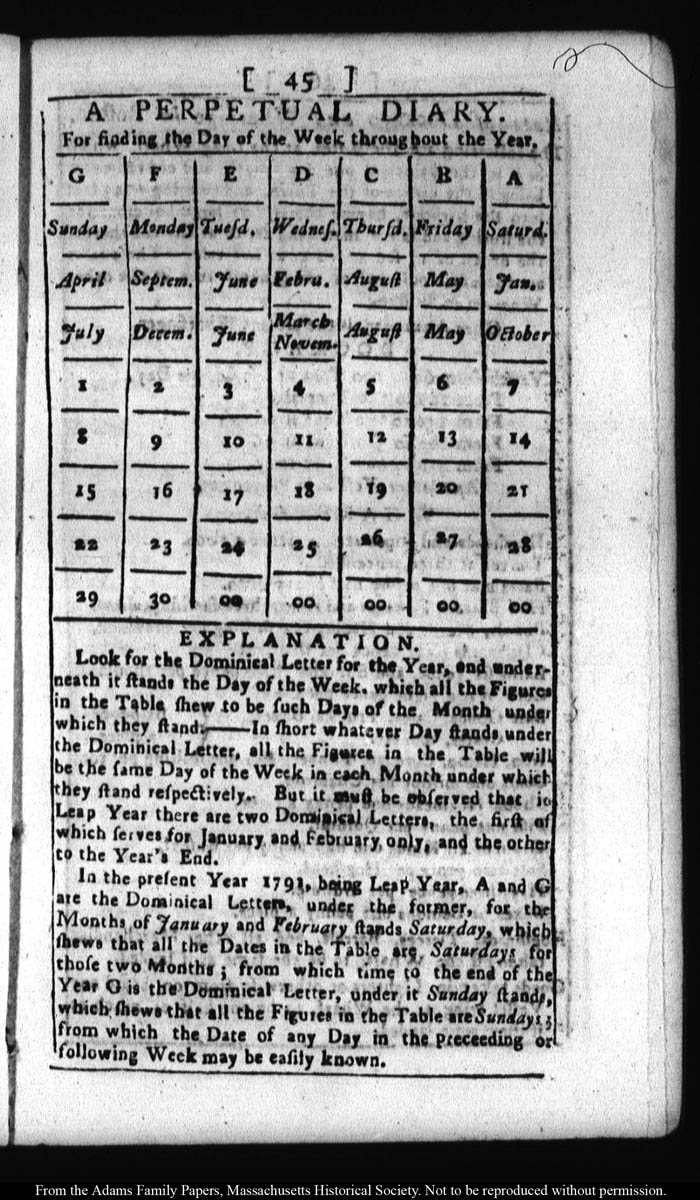 [ 45 ]
A PERPETUAL DIARY.
For finding the Day of the Week throughout the Year.
G F E D C B A
Sunday Monday Tueſd. Wedneſ. Thurſd. Friday Saturd.
April Septem. June Febru. Auguſt May Jan.
July Decem. June March Novem. Auguſt May October
1 2 3 4 5 6 7
8 9 10 11 12 13 14
15 16 17 18 19 20 21
22 23 24 25 26 27 28
29 30 00 00 00 00 00
EXPLANATION.
Look for the Dominical Letter for the Year, and under-
neath it ſtands the Day of the Week, which all the Figures
in the Table ſhew to be ſuch Days of the Month under
which they ſtand.——In ſhort whatever Day ſtands under
the Dominical Letter, all the Figures in the Table will
be the ſame Day of the Week in each Month under which
they ſtand reſpectively. But it muſt be obſerved that in
Leap Year there are two Dominical Letters, the firſt of
which ſerves for January and February only, and the other
to the Year's End.
In the preſent Year 1792, being Leap Year, A and G
are the Dominical Letters, under the former, for the
Months of January and February ſtands Saturday, which
ſhews that all the Dates in the Table are Saturdays for
thoſe two Months; from which time to the end of the
Year G is the Dominical Letter, under it Sunday ſtands,
which ſhews that all the Figures in the Table are Sundays;
from which the Date of any Day in the preceeding or
following Week may be eaſily known.
From the Adams Family Papers, Massachusetts Historical Society. Not to be reproduced without permission.